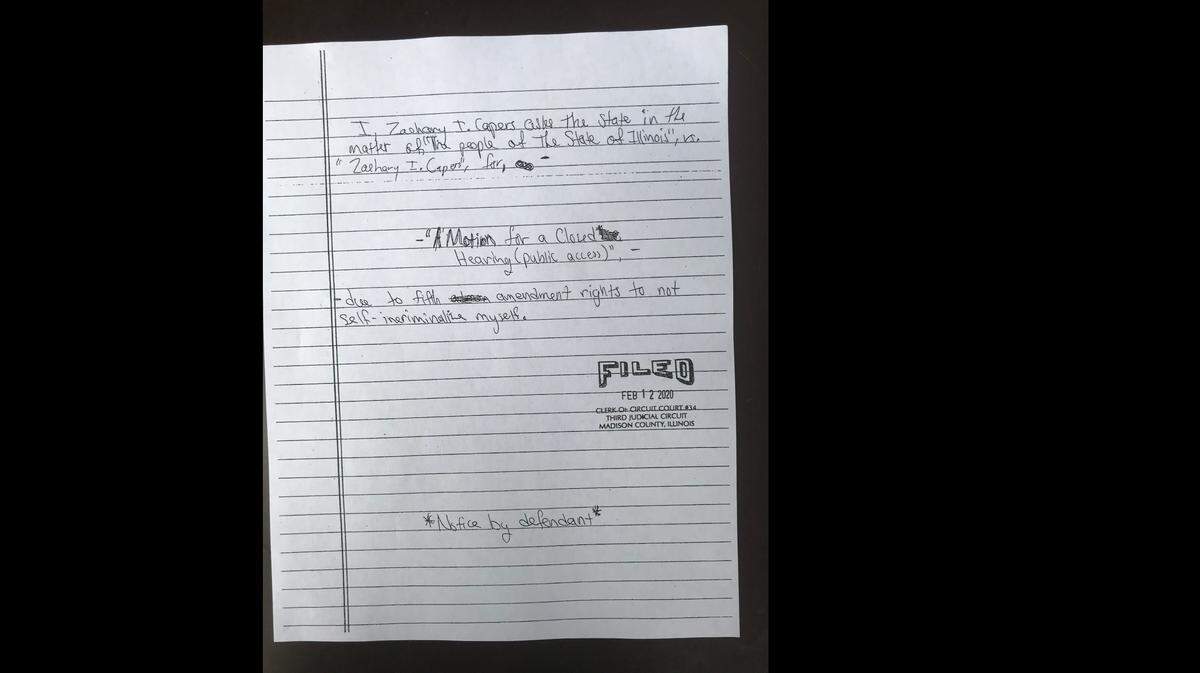 I, Zachary I. Capers asks the State in the
matter of, "The people of The State of Illinois", vs.
"Zachary I. Capers", for, -
-"A Motion for a Closed
Hearing (public access)", -
-due to fifth amendment rights to not
self-incriminalize myself.
FILED
FEB 12 2020
CLERK OF CIRCUIT COURT #34
THIRD JUDICIAL CIRCUIT
MADISON COUNTY, ILLINOIS
*Notice by defendant*